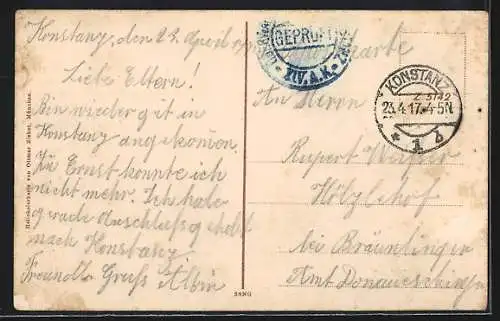 Konstanz, den 22. April 1917
Postkarte
GEPRÜFT
XIV. A.K.
KONSTANZ
23.4.17.4-5N
* 1 b
Z 5742
Liebe Eltern!
Bin wieder gut in
Konstanz angekomen.
Zu Ernst konnte ich
nicht mehr. Ich habe
grade Anschluss gehabt
nach Konstanz
Freundl. Gruß Albin
An Herrn
Rupert
Hölzlehof
bei Bräunlingen
Amt Donaueschingen
Reichskarte von Ottmar Zieher, München.